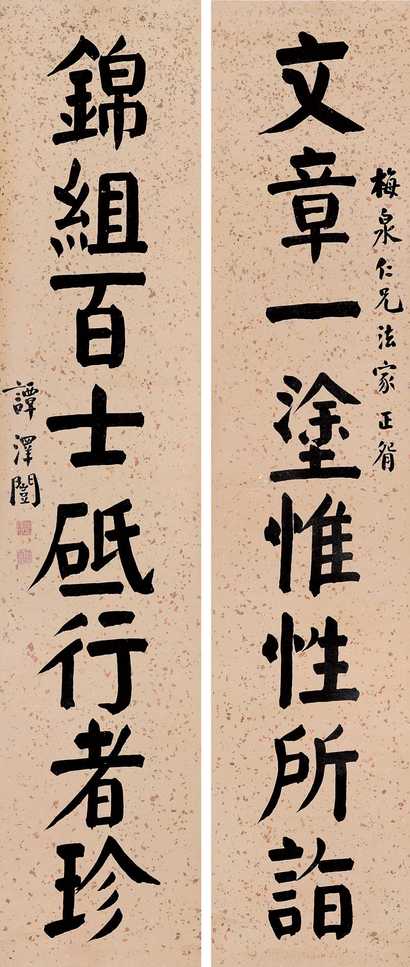 梅泉仁兄法家正 
文章一塗惟性所詣
錦組百士砥行者珍
譚澤闓